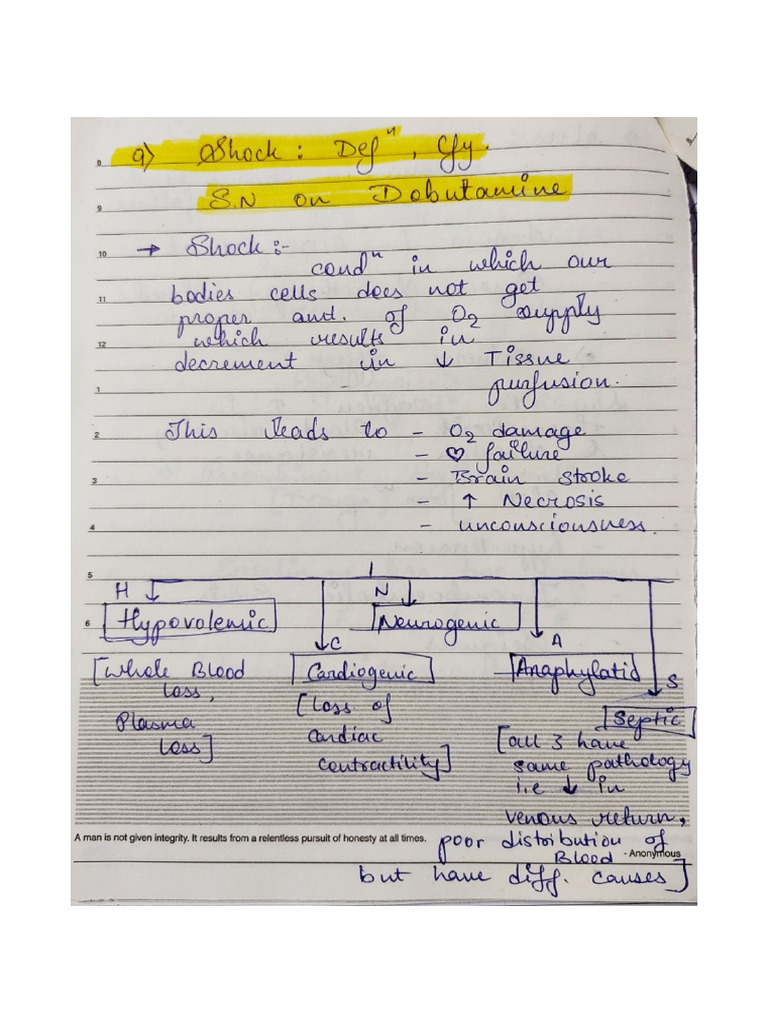 9) Shock : Defⁿ, Cfy.
S.N on Dobutamine
→ Shock :-
condⁿ in which our
bodies cells does not get
proper amt. of O2 supply
which results in
decrement in ↓ Tissue
purfusion.
This leads to - O2 damage
- ♡ failure
- Brain stroke
- ↑ Necrosis
- unconsciousness.
H N
Hypovolemic Neurogenic
C A
[Whole Blood loss, Plasma loss]
Cardiogenic
[Loss of
cardiac
contractility]
Anaphylatid
S
Septic
[all 3 have
same pathology
i.e ↓ in
venous return,
poor distribution of
Blood
but have diff. causes]
8
9
10
11
12
1
2
3
4
5
6
A man is not given integrity. It results from a relentless pursuit of honesty at all times.
- Anonymous